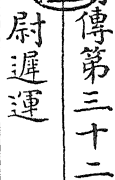 傳第三十二
尉遲運